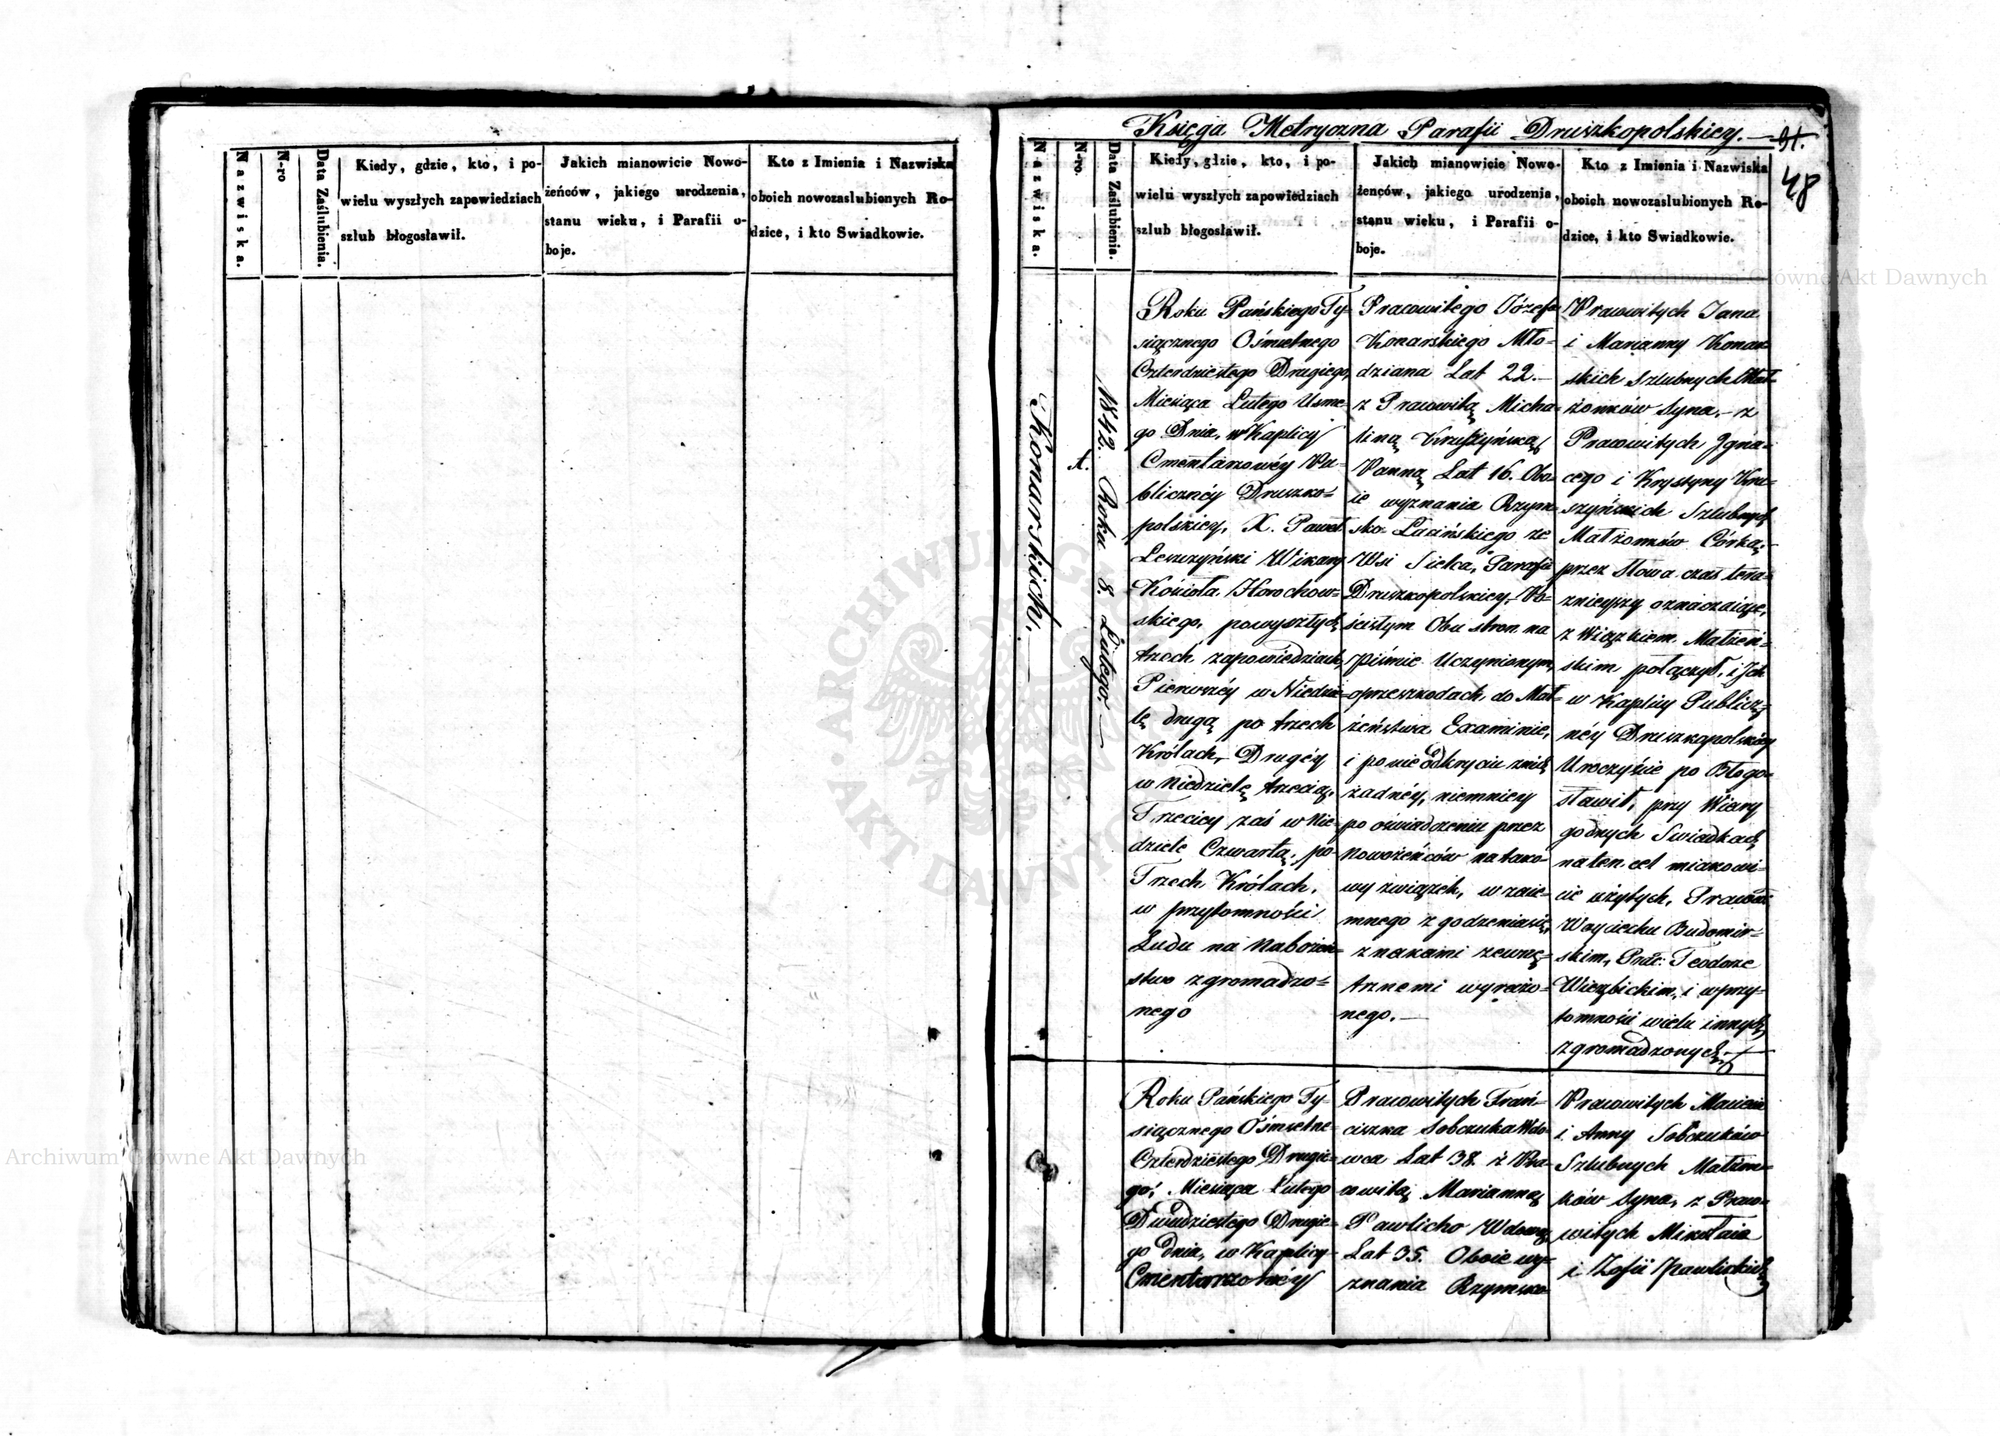 Nazwiska.
N-ro
Data Zaślubienia.
Kiedy, gdzie, kto, i po-
wielu wyszłych zapowiedziach
szlub błogosławił.
Jakich mianowicie Nowo-
żeńców, jakiego urodzenia,
stanu wieku, i Parafii o-
boje.
Kto z Imienia i Nazwiska
oboich nowozaslubionych Ro-
dzice, i kto Swiadkowie.
Księga Metryczna Parafii Druszkopolskiey.
91.
48
Nazwiska.
N-ro.
Data Zaślubienia.
Kiedy, gdzie, kto, i po-
wielu wyszłych zapowiedziach
szlub błogosławił.
Jakich mianowicie Nowo-
żenców, jakiego urodzenia,
stanu wieku, i Parafii o-
boje.
Kto z Imienia i Nazwiska
oboich nowozaslubionych Ro-
dzice, i kto Swiadkowie.
Konarskich.
1.
1842. Roku 8. Lutego.
Roku Pańskiego Ty-
siącznego Ośmsetnego
Czterdziestego Drugiego,
Miesiąca Lutego Usme-
go Dnia, w Kaplicy
Cmentarzowéy Pu-
blicznéy Druszko-
polskiey, X. Paweł
Leszczyński Wikary
Kościoła Horochow-
skiego, powyszłych
trzech zapowiedziach,
Pierwszéy w Niedzie-
lę drugą po trzech
Królach, Drugiéy
w Niedzielę trzecią,
Trzeciey zaś w Nie-
dziele Czwartą, po
Trzech Królach,
w przytomności
Ludu na Nabożeń-
stwo zgromadzo-
nego
Pracowitego Józefa
Konarskiego Mło-
dziana Lat 22.
z Pracowitą Micha-
liną Kruszyńską
Panną Lat 16. Obo-
ie wyznania Rzym-
sko-Lacińskiego ze
Wsi Sielca, Parafii
Druszkopolskiey, Po-
ścisłym Obu stron na
piśmie Uczynionym,
oprzeszkodach do Mał-
żeństwa Examinie,
i po nie odkryciu znich
żadnéy, niemniey
po oświadczeniu przez
Nowożeńców na tako-
wy związek, wzaie-
mnego zgodzeniasię,
znakami zewnę-
trznemi wyrażo-
nego.
Pracowitych Jana
i Marianny Konar-
skich Szlubnych Mał-
żonków Syna, z
Pracowitych Igna-
cego i Krystyny Kru-
szyńskich Szlubnych
Małżonków Córką,
przez Słowa czas tera-
znieyszy oznaczaiące,
z Wiązkiem Małżeń-
skim połączył, i Ich
w Kaplicy Publicz-
néy Druszkopolskiéy
Uroczyście po Błogo-
sławił, przy Wiary
godnych Swiadkach
na ten cel mianowi-
cie użytych, Pracowi:
Woyciechu Budomir-
skim, Prac: Teodorze
Wierzbickim, i wprzy-
tomności wielu innych
zgromadzonych.
Roku Pańskiego Ty-
siącznego Ośmsetne-
Czterdziestego Drugie-
go, Miesiąca Lutego
Dwudziestego Drugie-
go dnia, w Kaplicy
Cmentarzowéy
Pracowitych Fran-
ciszka Sobczuka Wdo-
wca Lat 38. z Pra-
cowitą Marianną
Pawlicho Wdową,
Lat 35. Oboie wy-
znania Rzymsko
Pracowitych Macieia
i Anny Sobczuków
Szlubnych Małżon-
ków Syna, z Praco-
witych Mikołaia
i Zofii Pawlickich
Archiwum Główne Akt Dawnych
Archiwum Główne Akt Dawnych
ARCHIWUM GŁÓWNE AKT DAWNYCH